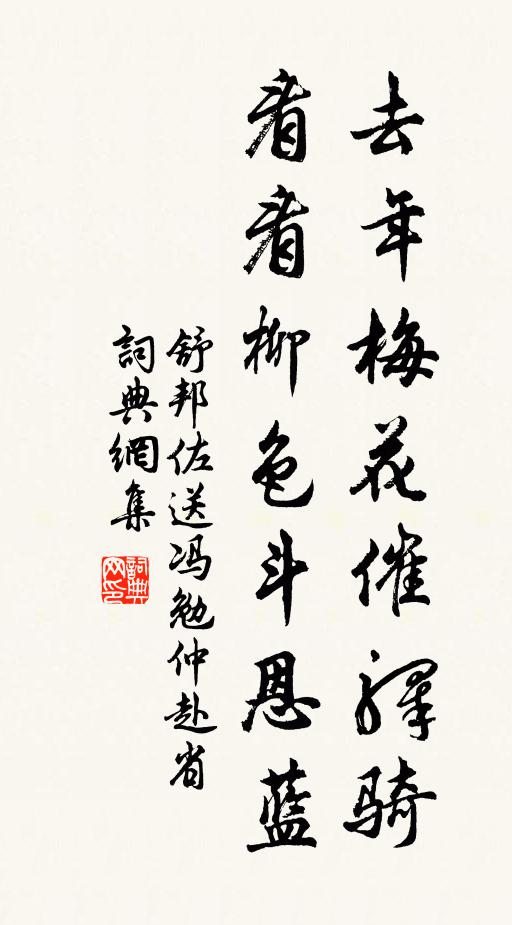 去年梅花催驛騎
看看柳色斗恩藍
舒邦佐送冯勉仲赴省
詞典網集
詞典网印